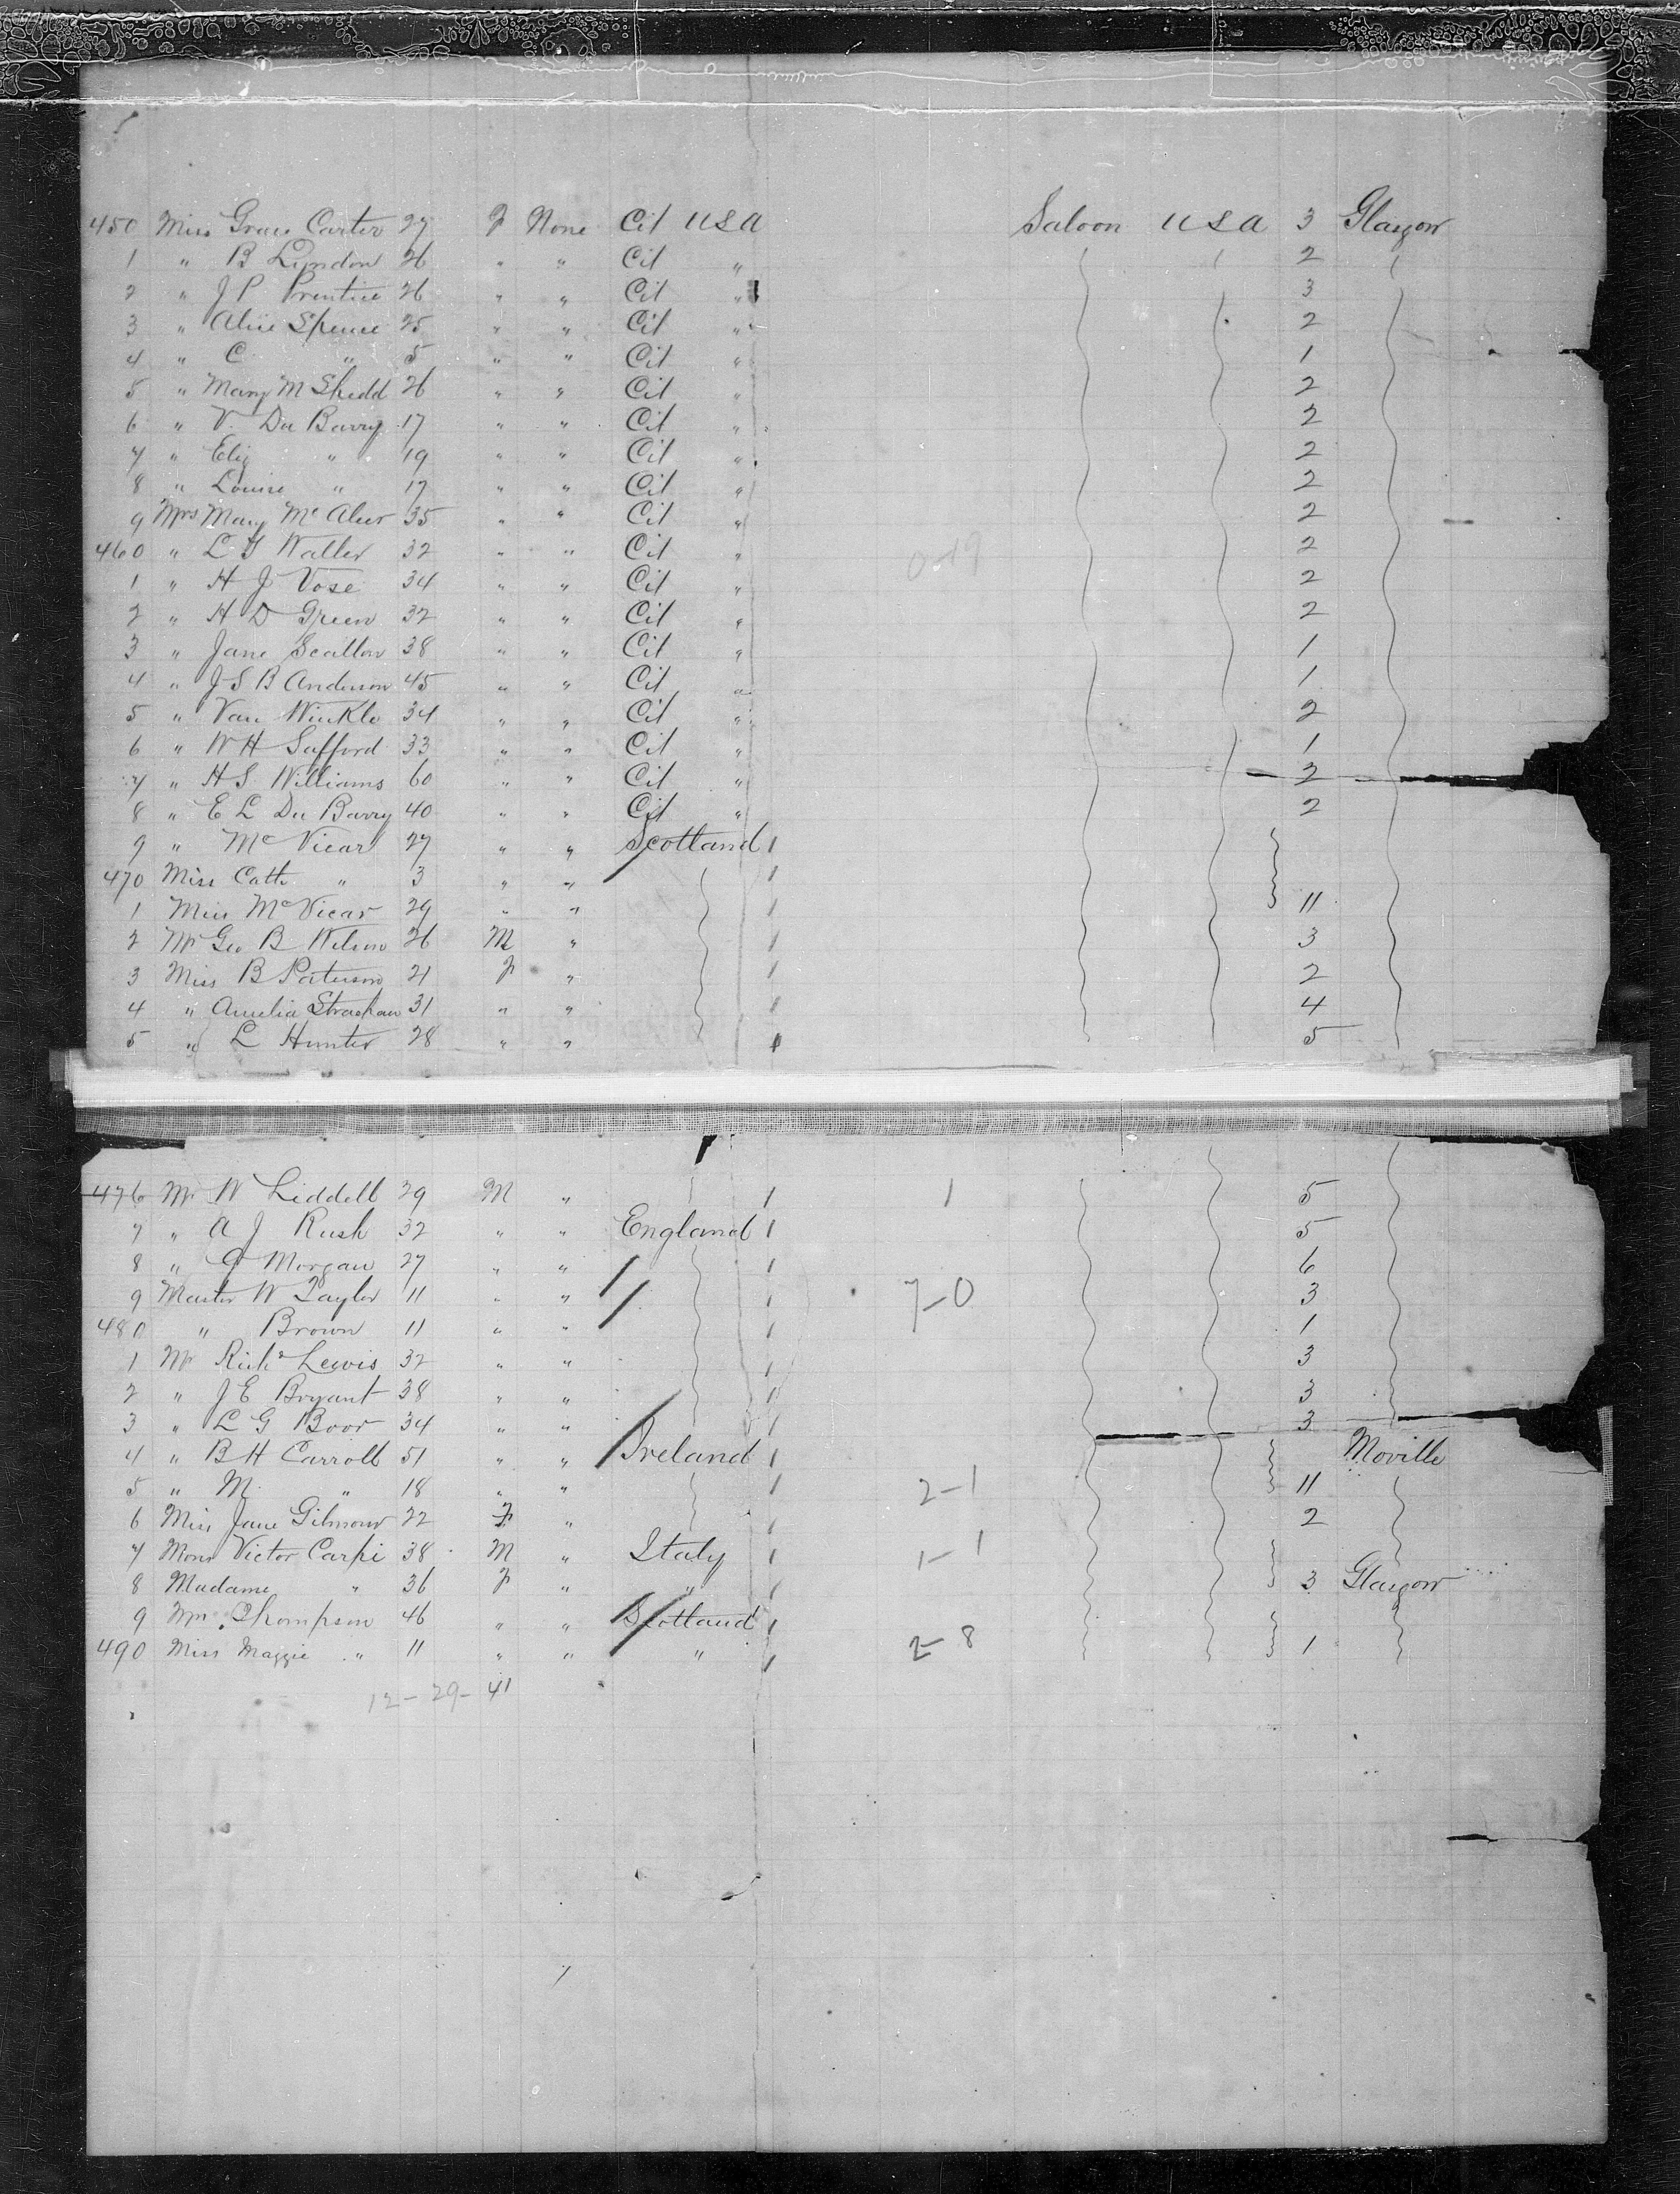 450 Miss Grace Carter 27 F None Cit USA Saloon USA 3 Glasgow
1 " B Lyndon 26 " " Cit " 2
2 " J P Prentice 26 " " Cit " 3
3 " Alice Spence 25 " " Cit " 2
4 " C " 5 " " Cit " 1
5 " Mary M Shedd 26 " " Cit " 2
6 " V. Du Barry 17 " " Cit " 2
7 " Eliz " 19 " " Cit " 2
8 " Louise " 17 " " Cit " 2
9 Mrs Mary Mc Aleer 35 " " Cit " 2
460 " L Waller 32 " " Cit " 0-19 2
1 " H J Vose 34 " " Cit " 2
2 " H D Green 32 " " Cit " 2
3 " Jane Scallon 38 " " Cit " 1
4 " J S B Anderson 45 " " Cit " 1
5 " Van Winkle 34 " " Cit " 2
6 " W H Safford 33 " " Cit " 1
7 " H S Williams 60 " " Cit " 2
8 " E L Du Barry 40 " " Cit " 2
9 " Mc Vicar 27 " " Scotland 1
470 Miss Cath " 3 " " 1
1 Miss Mc Vicar 29 " " 1 11
2 Mr Geo B Wilson 26 M " 1 3
3 Miss B Paterson 21 F " 1 2
4 " Amelia Strachan 31 " " 1 4
5 " L Hunter 28 " " 1 5
476 Mr W Liddell 29 M " 1 1 5
7 " A J Rush 32 " " England 1 5
8 " G Morgan 27 " " 1 6
9 Master W Taylor 11 " " 1 7-0 3
480 " Brown 11 " " 1 1
1 Mr Richd Lewis 32 " " 1 3
2 " J E Bryant 38 " " 1 3
3 " L G Boor 34 " " 1 3
4 " B H Carroll 51 " " Ireland 1 Moville
5 " M " 18 " " 1 2-1 11
6 Miss Jane Gilmour 22 F " 1 2
7 Mons Victor Carpi 38 M " Italy 1 1-1
8 Madame " 36 F " " 1 3 Glasgow
9 Mrs Thompson 46 " " Scotland 1
490 Miss Maggie " 11 " " " 1 2-8 1
12-29-41